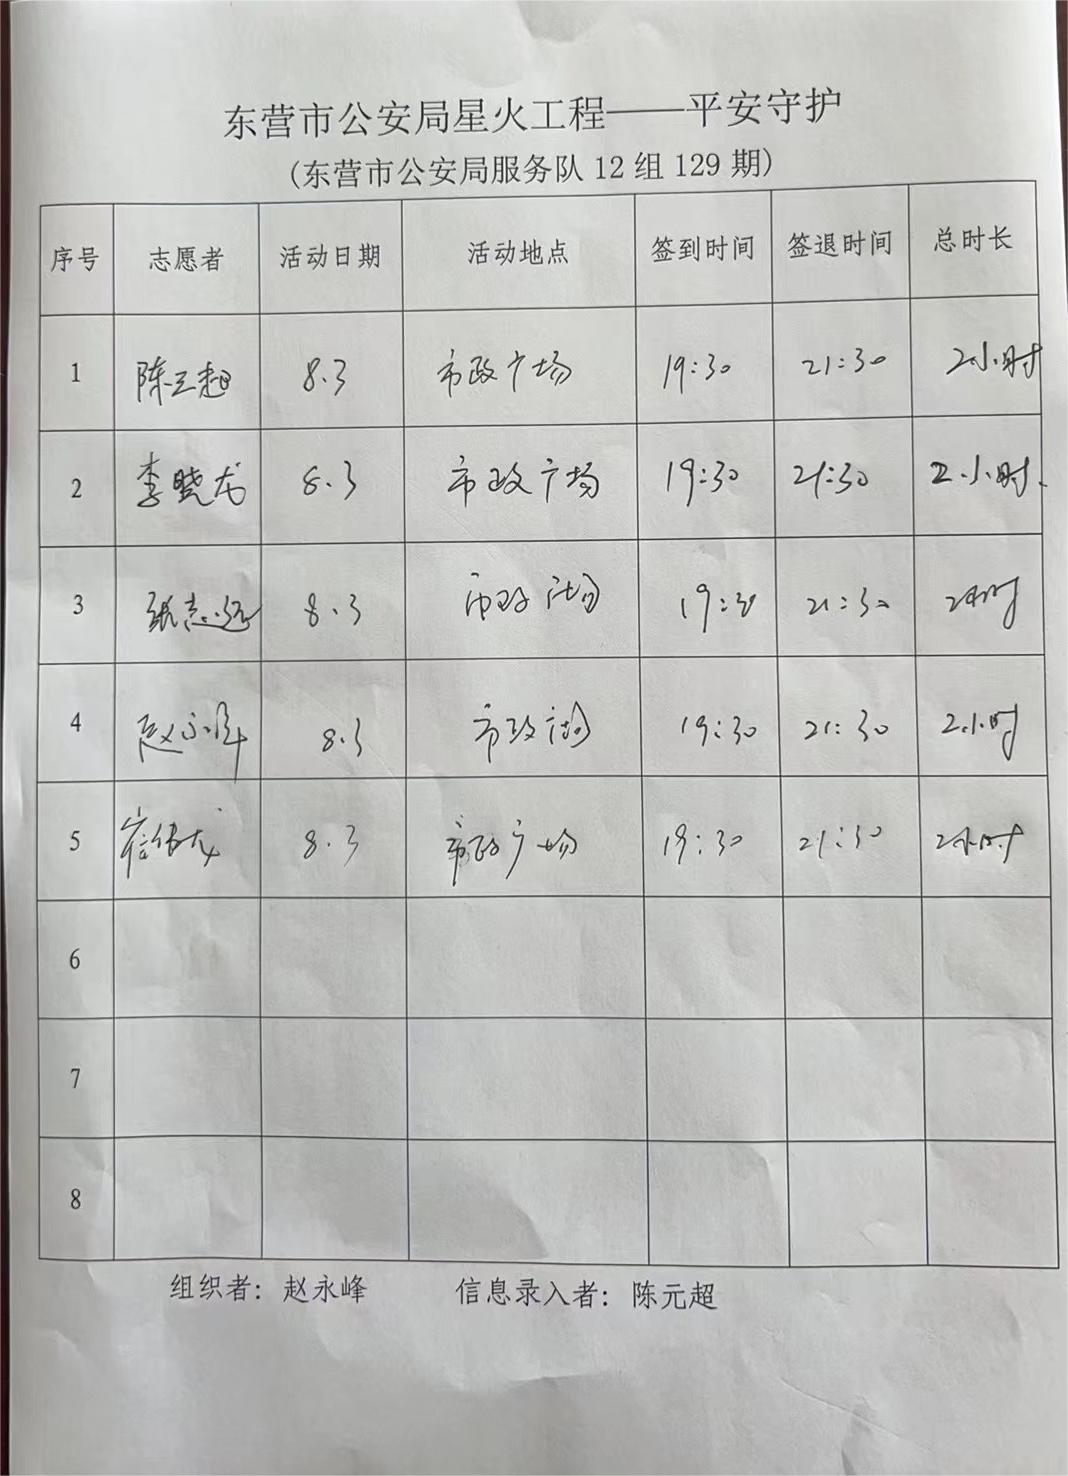 东营市公安局星火工程——平安守护
(东营市公安局服务队 12 组 129 期)
序号 志愿者 活动日期 活动地点 签到时间 签退时间 总时长
1 陈元超 8.3 市政广场 19:30 21:30 2小时
2 李晓龙 8.3 市政广场 19:30 21:30 2小时.
3 张志远 8.3 市政广场 19:30 21:30 2小时
4 赵永峰 8.3 市政广场 19:30 21:30 2小时
5 8.3 市政广场 19:30 21:30 2小时
6
7
8
组织者：赵永峰 信息录入者：陈元超